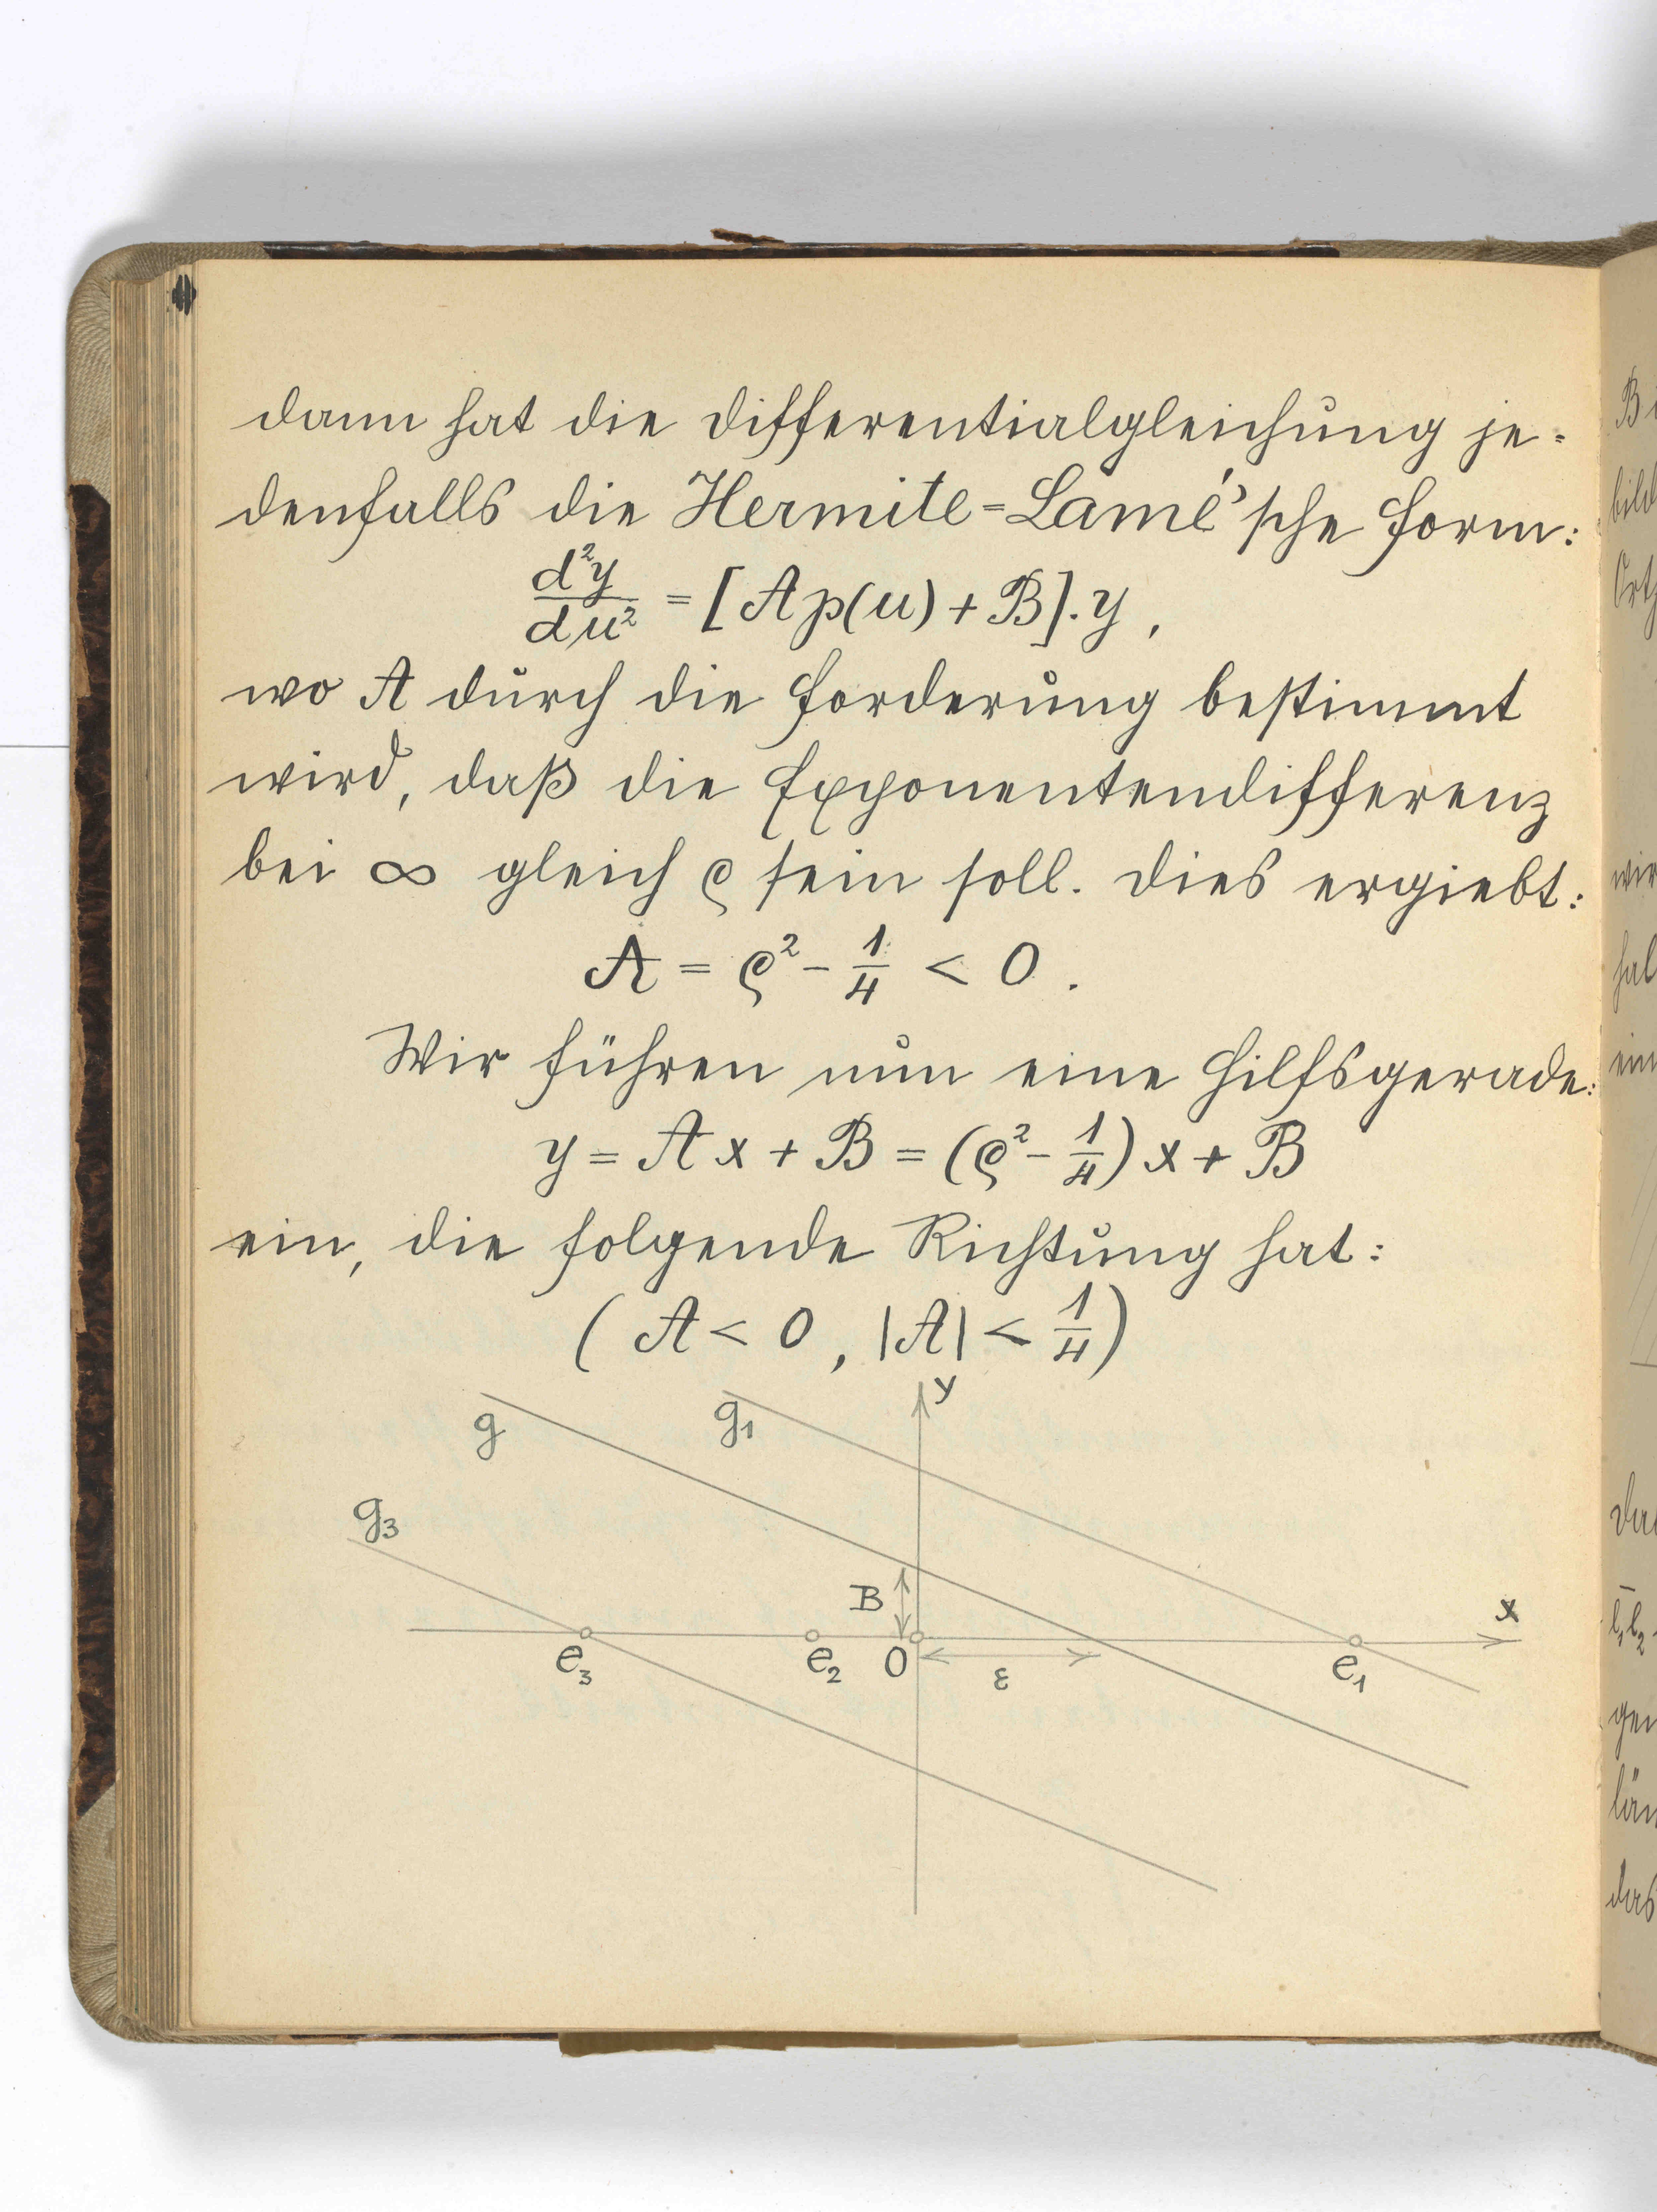 dann hat die Differentialgleichung je-
denfalls die Hermite-Lamé'sche Form:
d²y/du² = [A p(u) + B]. y ,
wo A durch die Forderung bestimmt
wird, daß die Exponentendifferenz
bei ∞ gleich ϱ sein soll. Dies ergiebt:
A = ϱ² - 1/4 < 0 .
Wir führen nun eine Hilfsgerade:
y = A x + B = (ϱ² - 1/4) x + B
ein, die folgende Richtung hat:
( A < 0 , |A| < 1/4 )
y
g
g₁
g₃
B
x
e₃
e₂
0
ε
e₁